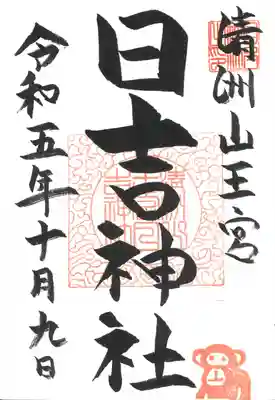 清洲山王宮
日吉神社
令和五年十月九日